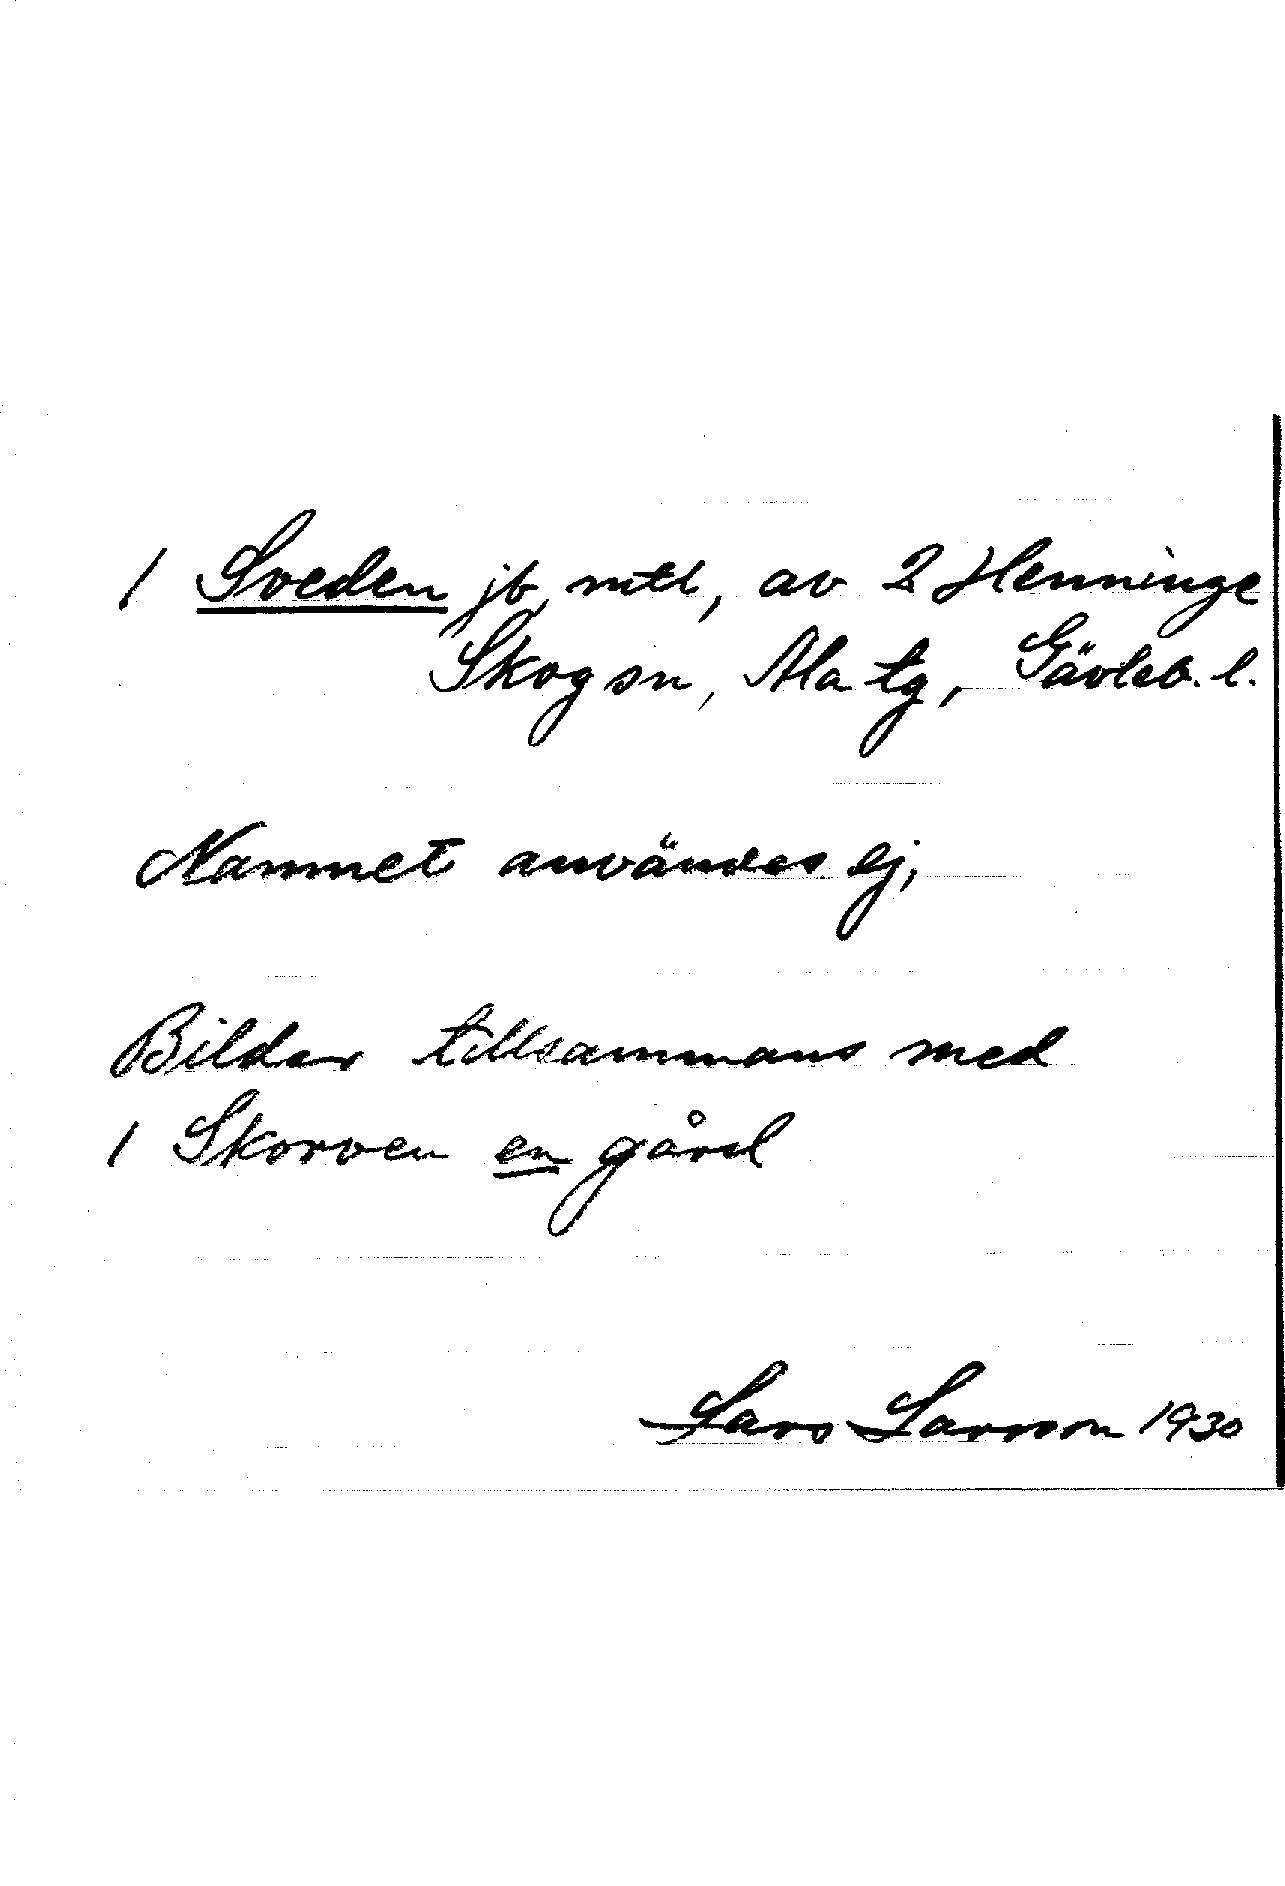 1 Sveden jb, mtl, av 2 Henninge
Skog sn, Ala tg, Gävleb. l.
Namnet användes ej,
Bildar tillsammans med
1 Skorven en gård
Lars Larsson 1930